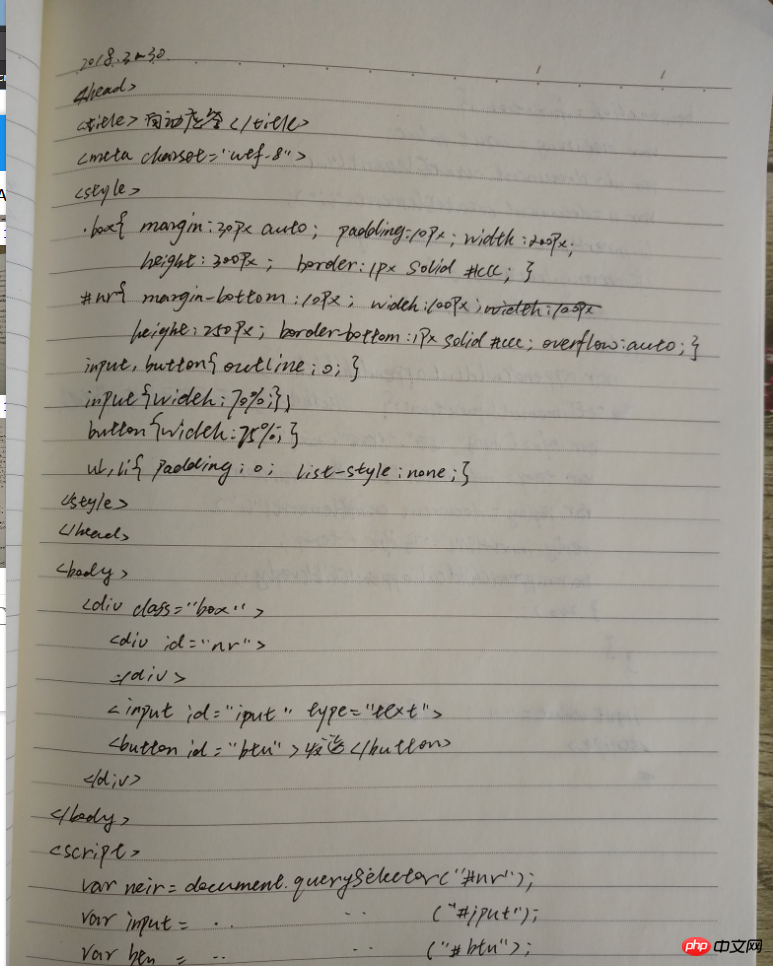 2018.3-30
</head>
<title>自动应答</title>
<meta charset="utf-8">
<style>
.box{ margin:30px auto; padding:10px; width:200px;
height:300px; border:1px solid #ccc; }
#nr{ margin-bottom:10px; width:100px; width:100px
height:250px; border-bottom:1px solid #ccc; overflow:auto;}
input,button{outline:0;}
input{width:70%;}
button{width:25%;}
ul,li{ padding:0; list-style:none;}
<style>
</head>
<body>
<div class="box">
<div id="nr">
</div>
<input id="iput" type="text">
<button id="btn">发送</button>
</div>
</body>
<script>
var neir=document.querySelector("#nr");
var input= .. .. ("#iput");
var btn = .. .. ("#btn");
php中文网